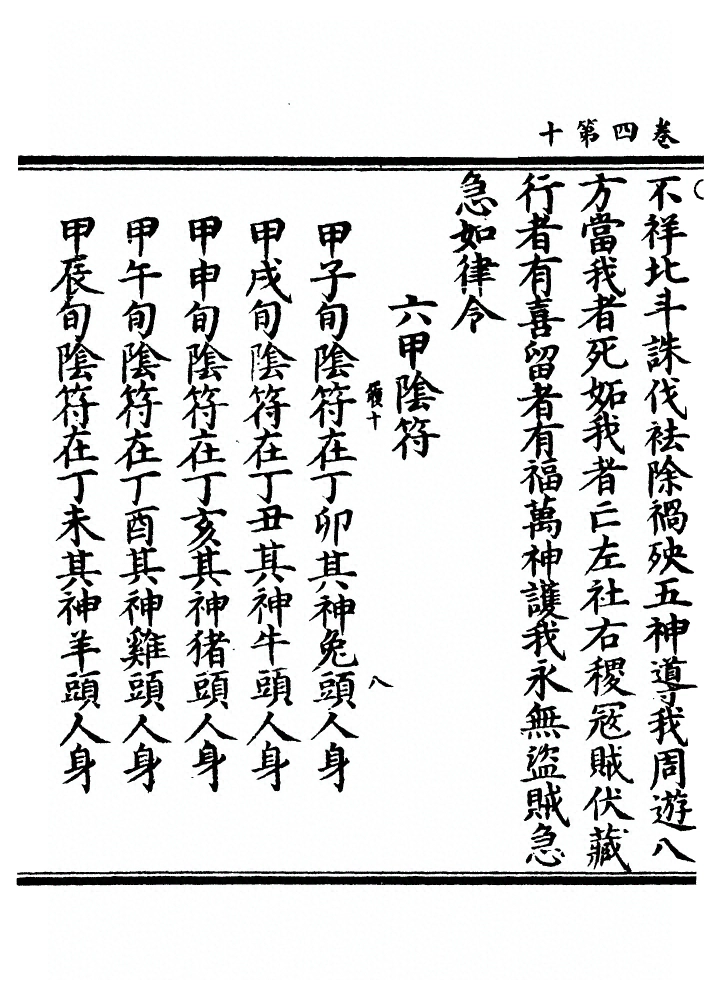 十第四卷
不祥北斗誅伐祛除禍殃五神導我周遊八
方當我者死妬我者亡左社右稷寇賊伏藏
行者有喜留者有福萬神護我永無盜賊急
急如律令
六甲陰符
十
八
甲子旬陰符在丁卯其神兔頭人身
甲戌旬陰符在丁丑其神牛頭人身
甲申旬陰符在丁亥其神猪頭人身
甲午旬陰符在丁酉其神雞頭人身
甲辰旬陰符在丁未其神羊頭人身